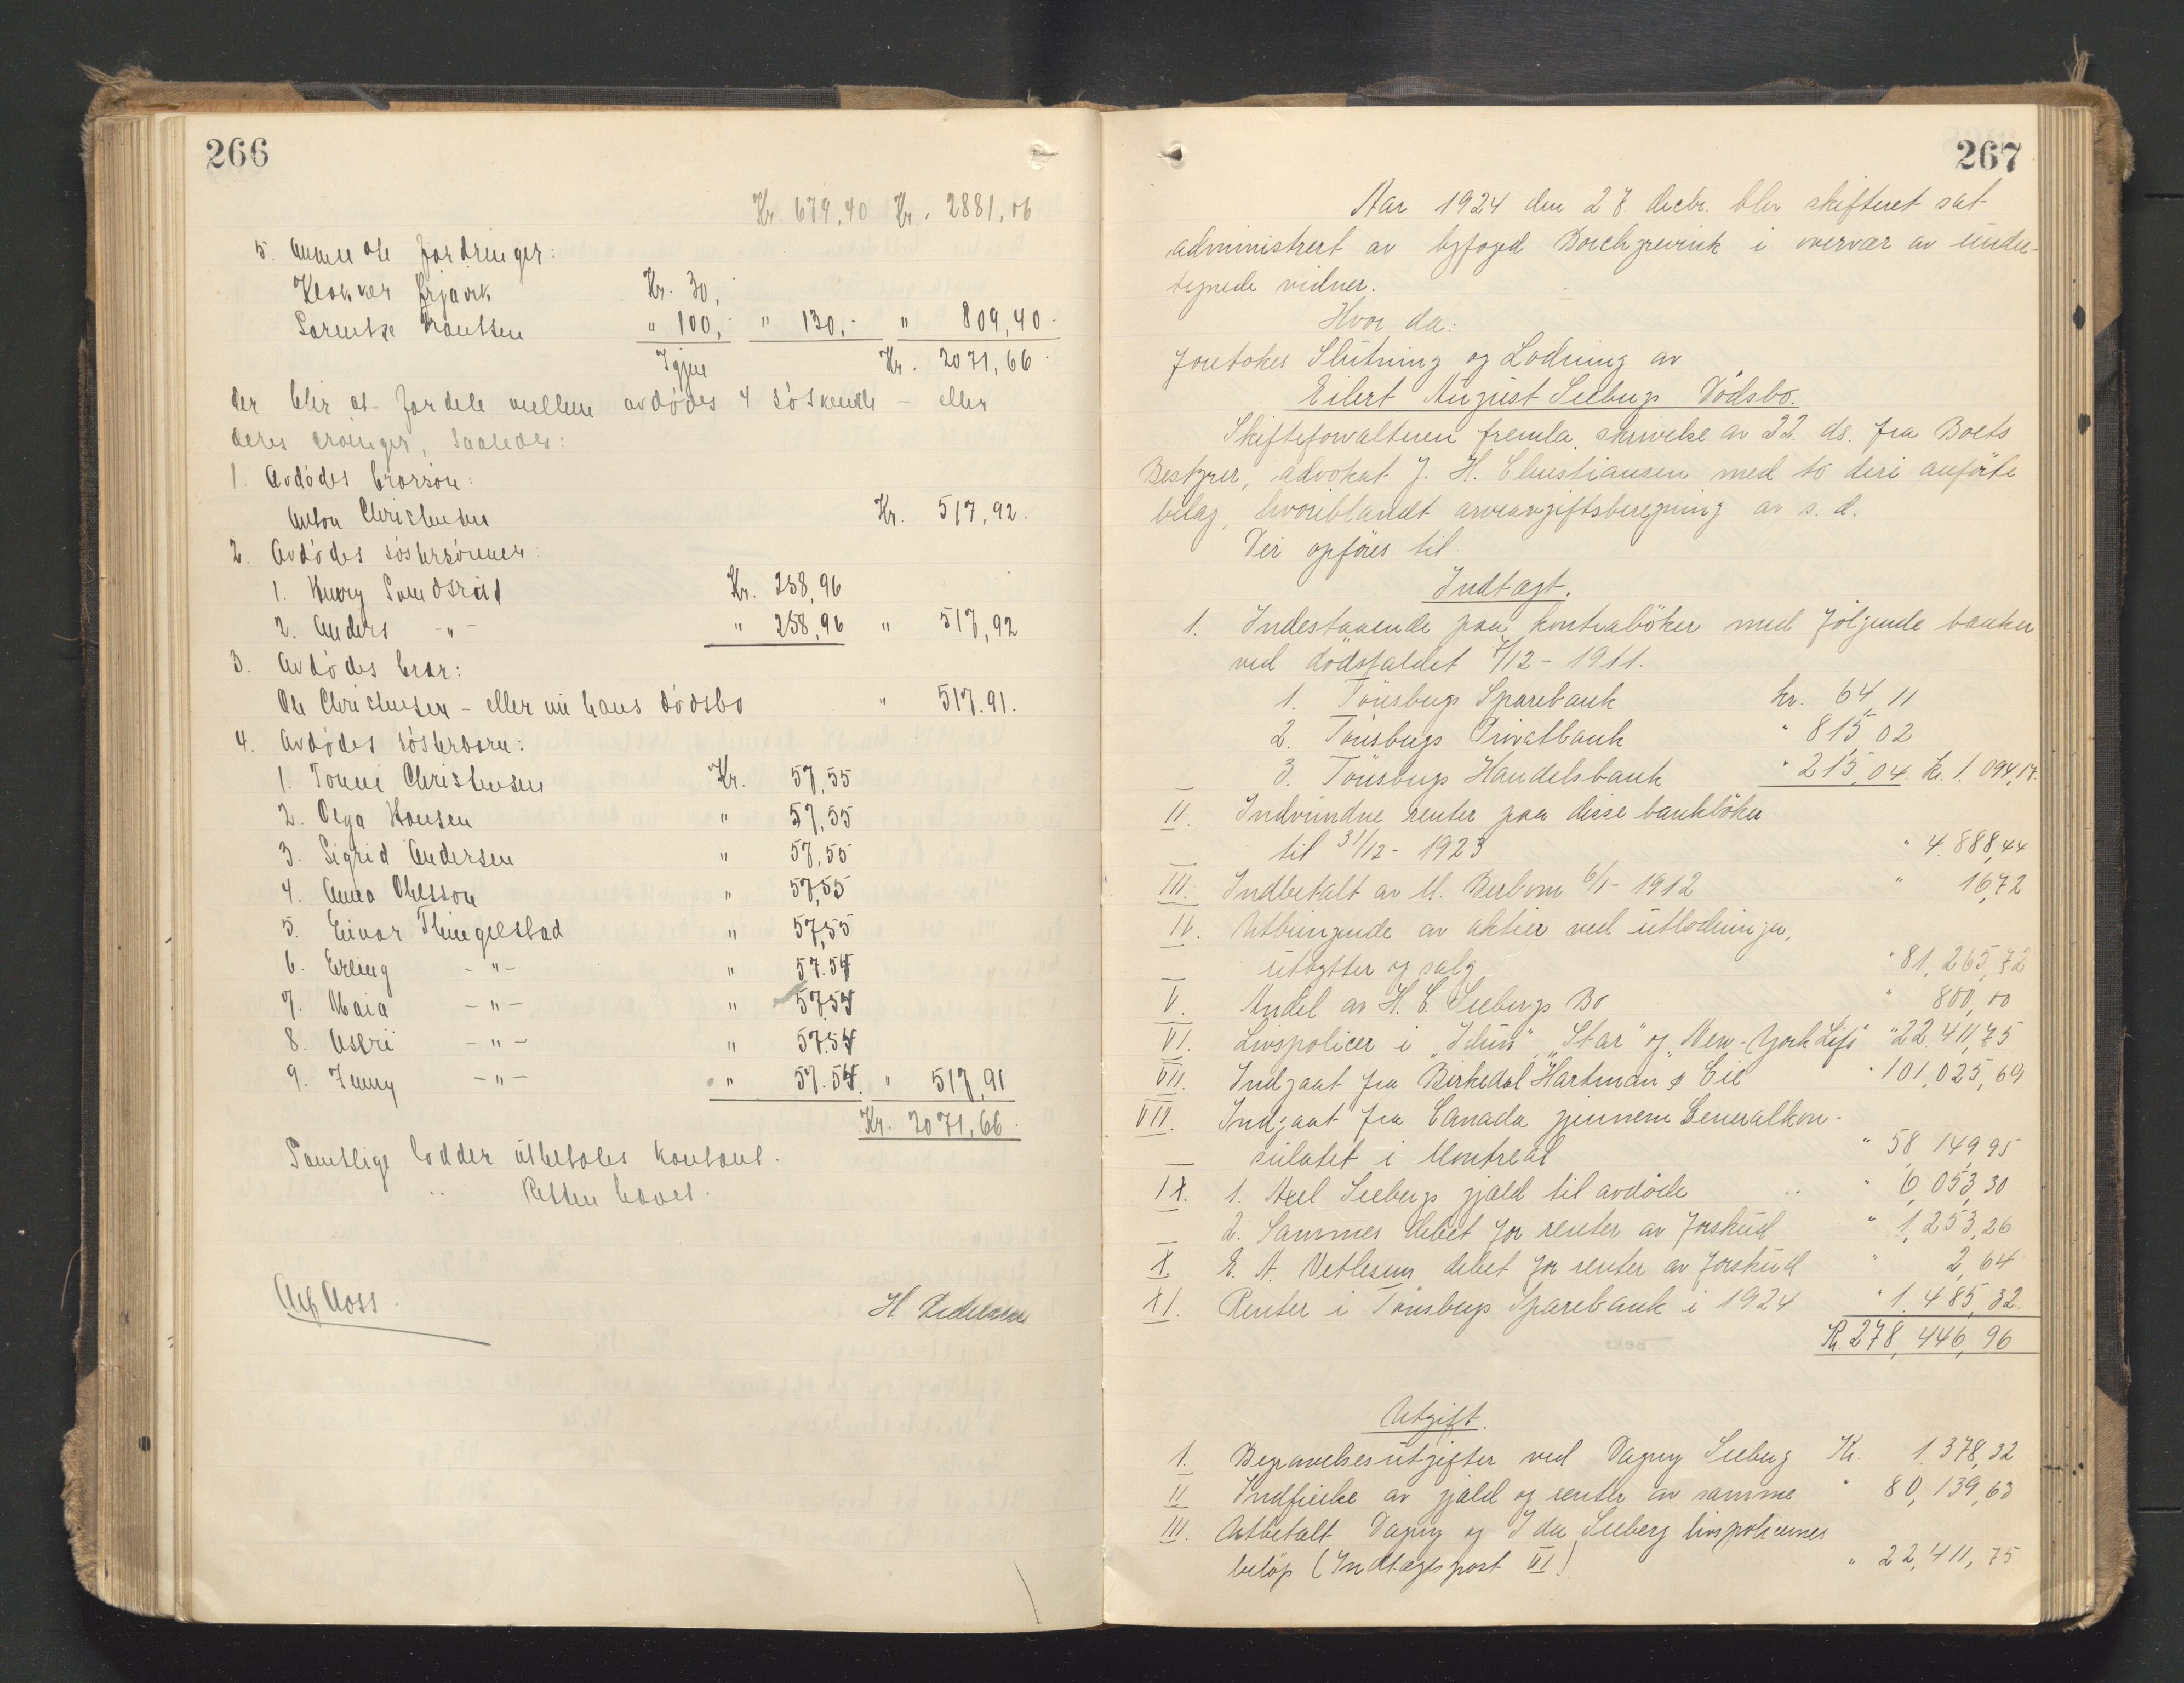 266
Kr. 679,40 Kr. 2881,06
5. Andre fordringer:
Klokker Kr. 30,-
Frantsen " 100,- " 130,- " 809,40
Igjen Kr. 2071,66
der blir at fordele mellem avdødes 4 søskende - eller
deres arvinger, saaledes:
1. Avdødes brorsøn:
Anton Christensen Kr. 517,92.
2. Avdødes søstersønner:
1. Henry Sandsrud Kr. 258,96
2. Anders -"- " 258,96 " 517,92
3. Avdødes bror:
Ole Christensen - eller nu hans dødsbo " 517.91.
4. Avdødes søsterbarn:
1. Christensen Kr. 57,55
2. Olga Hansen " 57,55
3. Sigrid Andersen " 57,55
4. Anna Olsson " 57,55
5. Einar Thingelstad " 57,55
6. Erling -"- " 57.54
7. Maia -"- " 57.54
8. Astri -"- " 57.54
9. Jenny -"- " 57.54. " 517,91
Kr. 2071,66.
Samtlige lodder utbetales kontant.
Retten hævet.
H Pedersen
267
Aar 1924 den 27. decbr. blev skifteret sat
administrert av byfoged Borchgrevink i overvær av under-
tegnede vidner.
Hvor da:
foretokes Slutning og Lodning av
Eilert August Seebergs Dödsbo.
Skifteforvalteren fremla skrivelse av 22. ds. fra Boets
Bestyrer, advokat J. H. Christiansen med 10 deri anførte
bilag, hvoriblandt arveavgiftsberegning av s. d.
Der opføres til
Indtægt.
1. Indestaaende paa kontrabøker med følgende banker
ved dødsfaldet 7/12 - 1911.
1. Tönsbergs Sparebank kr. 64,11
2. Tönsbergs Privatbank " 815,02
3. Tönsbergs Handelsbank " 215,04. Kr. 1.094,17.
II. Indvundne renter paa disse bankbøker
til 31/12 - 1923 " 4.888,44
III. Indbetalt av M. Berbom 6/1 - 1912 " 16,72
IV. Utbringende av aktier ved utlodninger,
utbytter og salg " 81,265,72
V. Andel av H. C. Seebergs Bo " 800,00
VI. Livspolicer i "Idun", "Star" og "New-York Life" " 22.411,75
VII. Indgaat fra Birkedal Hartman & Cie " 101,025,69
VIII. Indgaat fra Canada gjennem Generalkon-
sulatet i Montreal " 58,149,95
IX. 1. Axel Seebergs gjæld til avdøde " 6,053,30
2. Sammes debet for renter av forskud " 1,253,26
X. E. A. Vetlesens debet for renter av forskud " 2,64
XI. Renter i Tönsbergs Sparebank i 1924 " 1.485,32.
Kr. 278,446,96
Utgift.
1. Begravelsesutgifter ved Dagny Seeberg Kr. 1.378,32
II Indfrielse av gjæld og renter av samme " 80,139,63
III. Utbetalt Dagny og Ida Seeberg livspolicernes
beløp (Indtægtspost VI) " 22,411,75